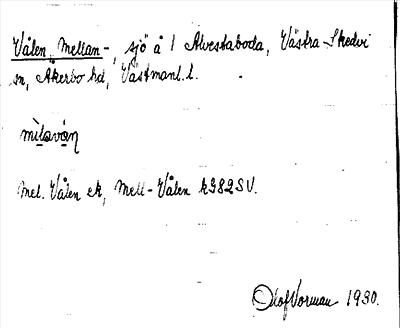 Vålen, Mellan-, sjö å 1 Alvestaboda, Västra-Skedvi
sn, Åkerbo hd, Västmanl. l.
mìlaván
Mel. Vålen ek, Mell-Vålen k982SV.
Olof Vorman 1930.